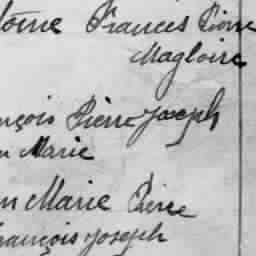 Frances Pierre
Magloire
nçois Pierre Joseph
n Marie
n Marie Pierre
rançois Joseph